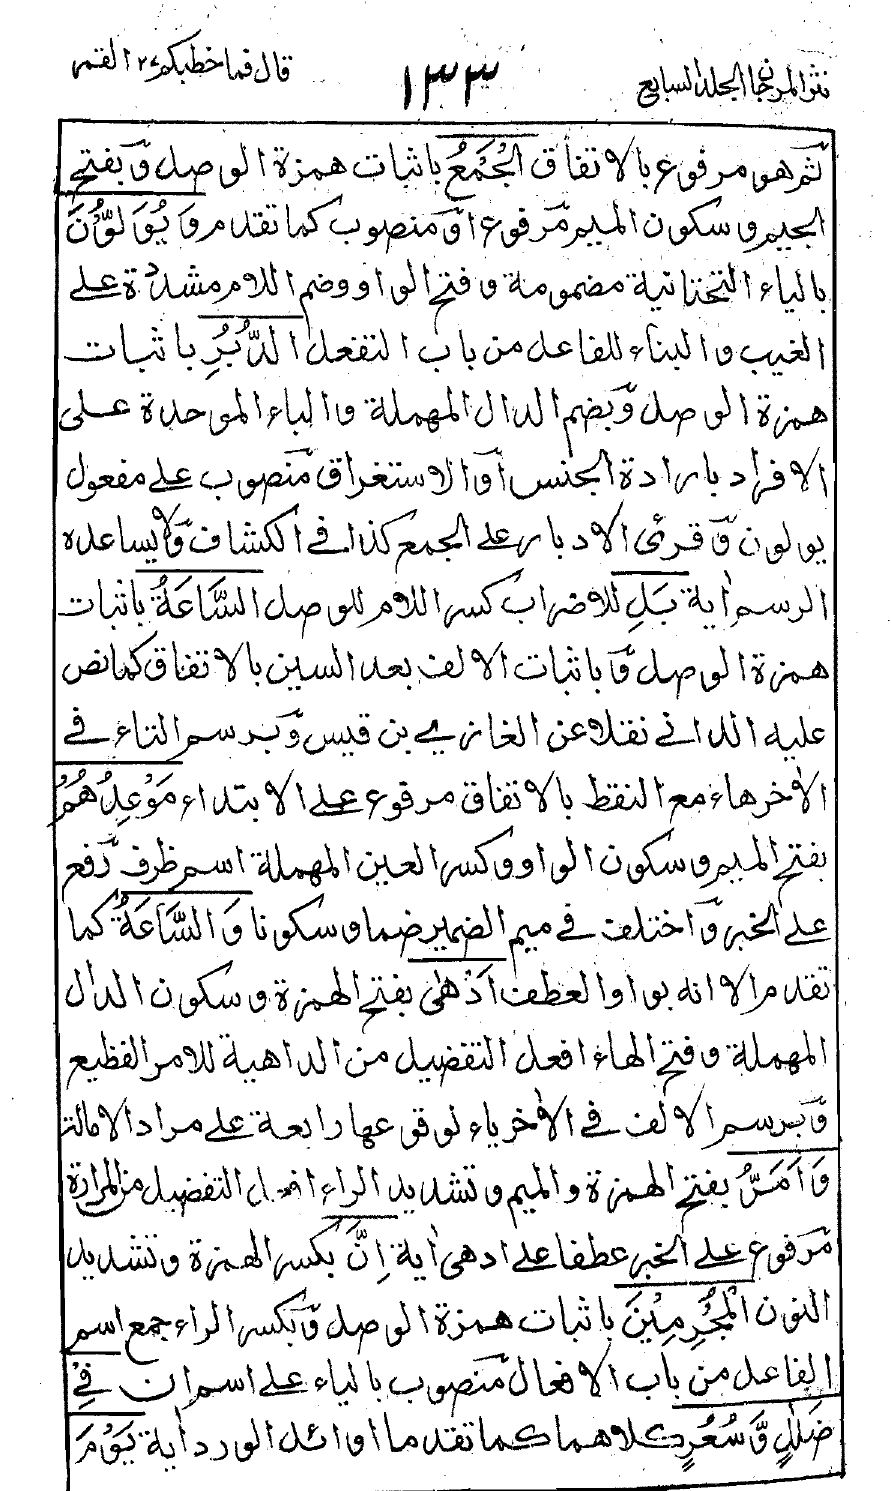 نثر المرجان الجلد السابع
١٣٣
قال فما خطبكم ٢٧ القمر
ثم هو مرفوع بالاتفاق الْجَمْعُ باثبات همزة الوصل وبفتح
الجيم وسكون الميم مرفوع او منصوب كما تقدم وَيُوَلُّوْنَ
بالياء التحتانية مضمومة وفتح الواو وضم اللام مشددة على
الغيب والبناء للفاعل من باب التفعل الدُّبُرَ باثبات
همزة الوصل وبضم الدال المهملة والباء الموحدة على
الافراد بارادة الجنس او الاستغراق منصوب على مفعول
يولون وقرئ الادبار على الجمع كذا في الكشاف ولا يساعده
الرسم اٰية بَلِ للاضراب كسر اللام للوصل السَّاعَةُ باثبات
همزة الوصل وباثبات الالف بعد السين بالاتفاق كما نص
عليه الداني نقلا عن الغازي بن قيس وبرسم التاء في
الاٰخر هاء مع النقط بالاتفاق مرفوع على الابتداء مَوْعِدُهُمْ
بفتح الميم وسكون الواو وكسر العين المهملة اسم ظرف رفع
على الخبر واختلف في ميم الضمير ضما وسكونا وَالسَّاعَةُ كما
تقدم الا انه بواو العطف اَدْهٰى بفتح الهمزة وسكون الدال
المهملة وفتح الهاء افعل التفضيل من الداهية للامر الفظيع
وبرسم الالف في الاٰخر ياء لوقوعها رابعة على مراد الامالة
وَاَمَرُّ بفتح الهمزة والميم وتشديد الراء افعل التفضيل من المرارة
مرفوع على الخبر عطفا على ادهى اٰية اِنَّ بكسر الهمزة وتشديد
النون الْمُجْرِمِيْنَ باثبات همزة الوصل وبكسر الراء جمع اسم
الفاعل من باب الافعال منصوب بالياء على اسم ان فِيْ
ضَلٰلٍ وَّسُعُرٍ كلاهما كما تقدما اوائل الورد اٰية يَوْمَ